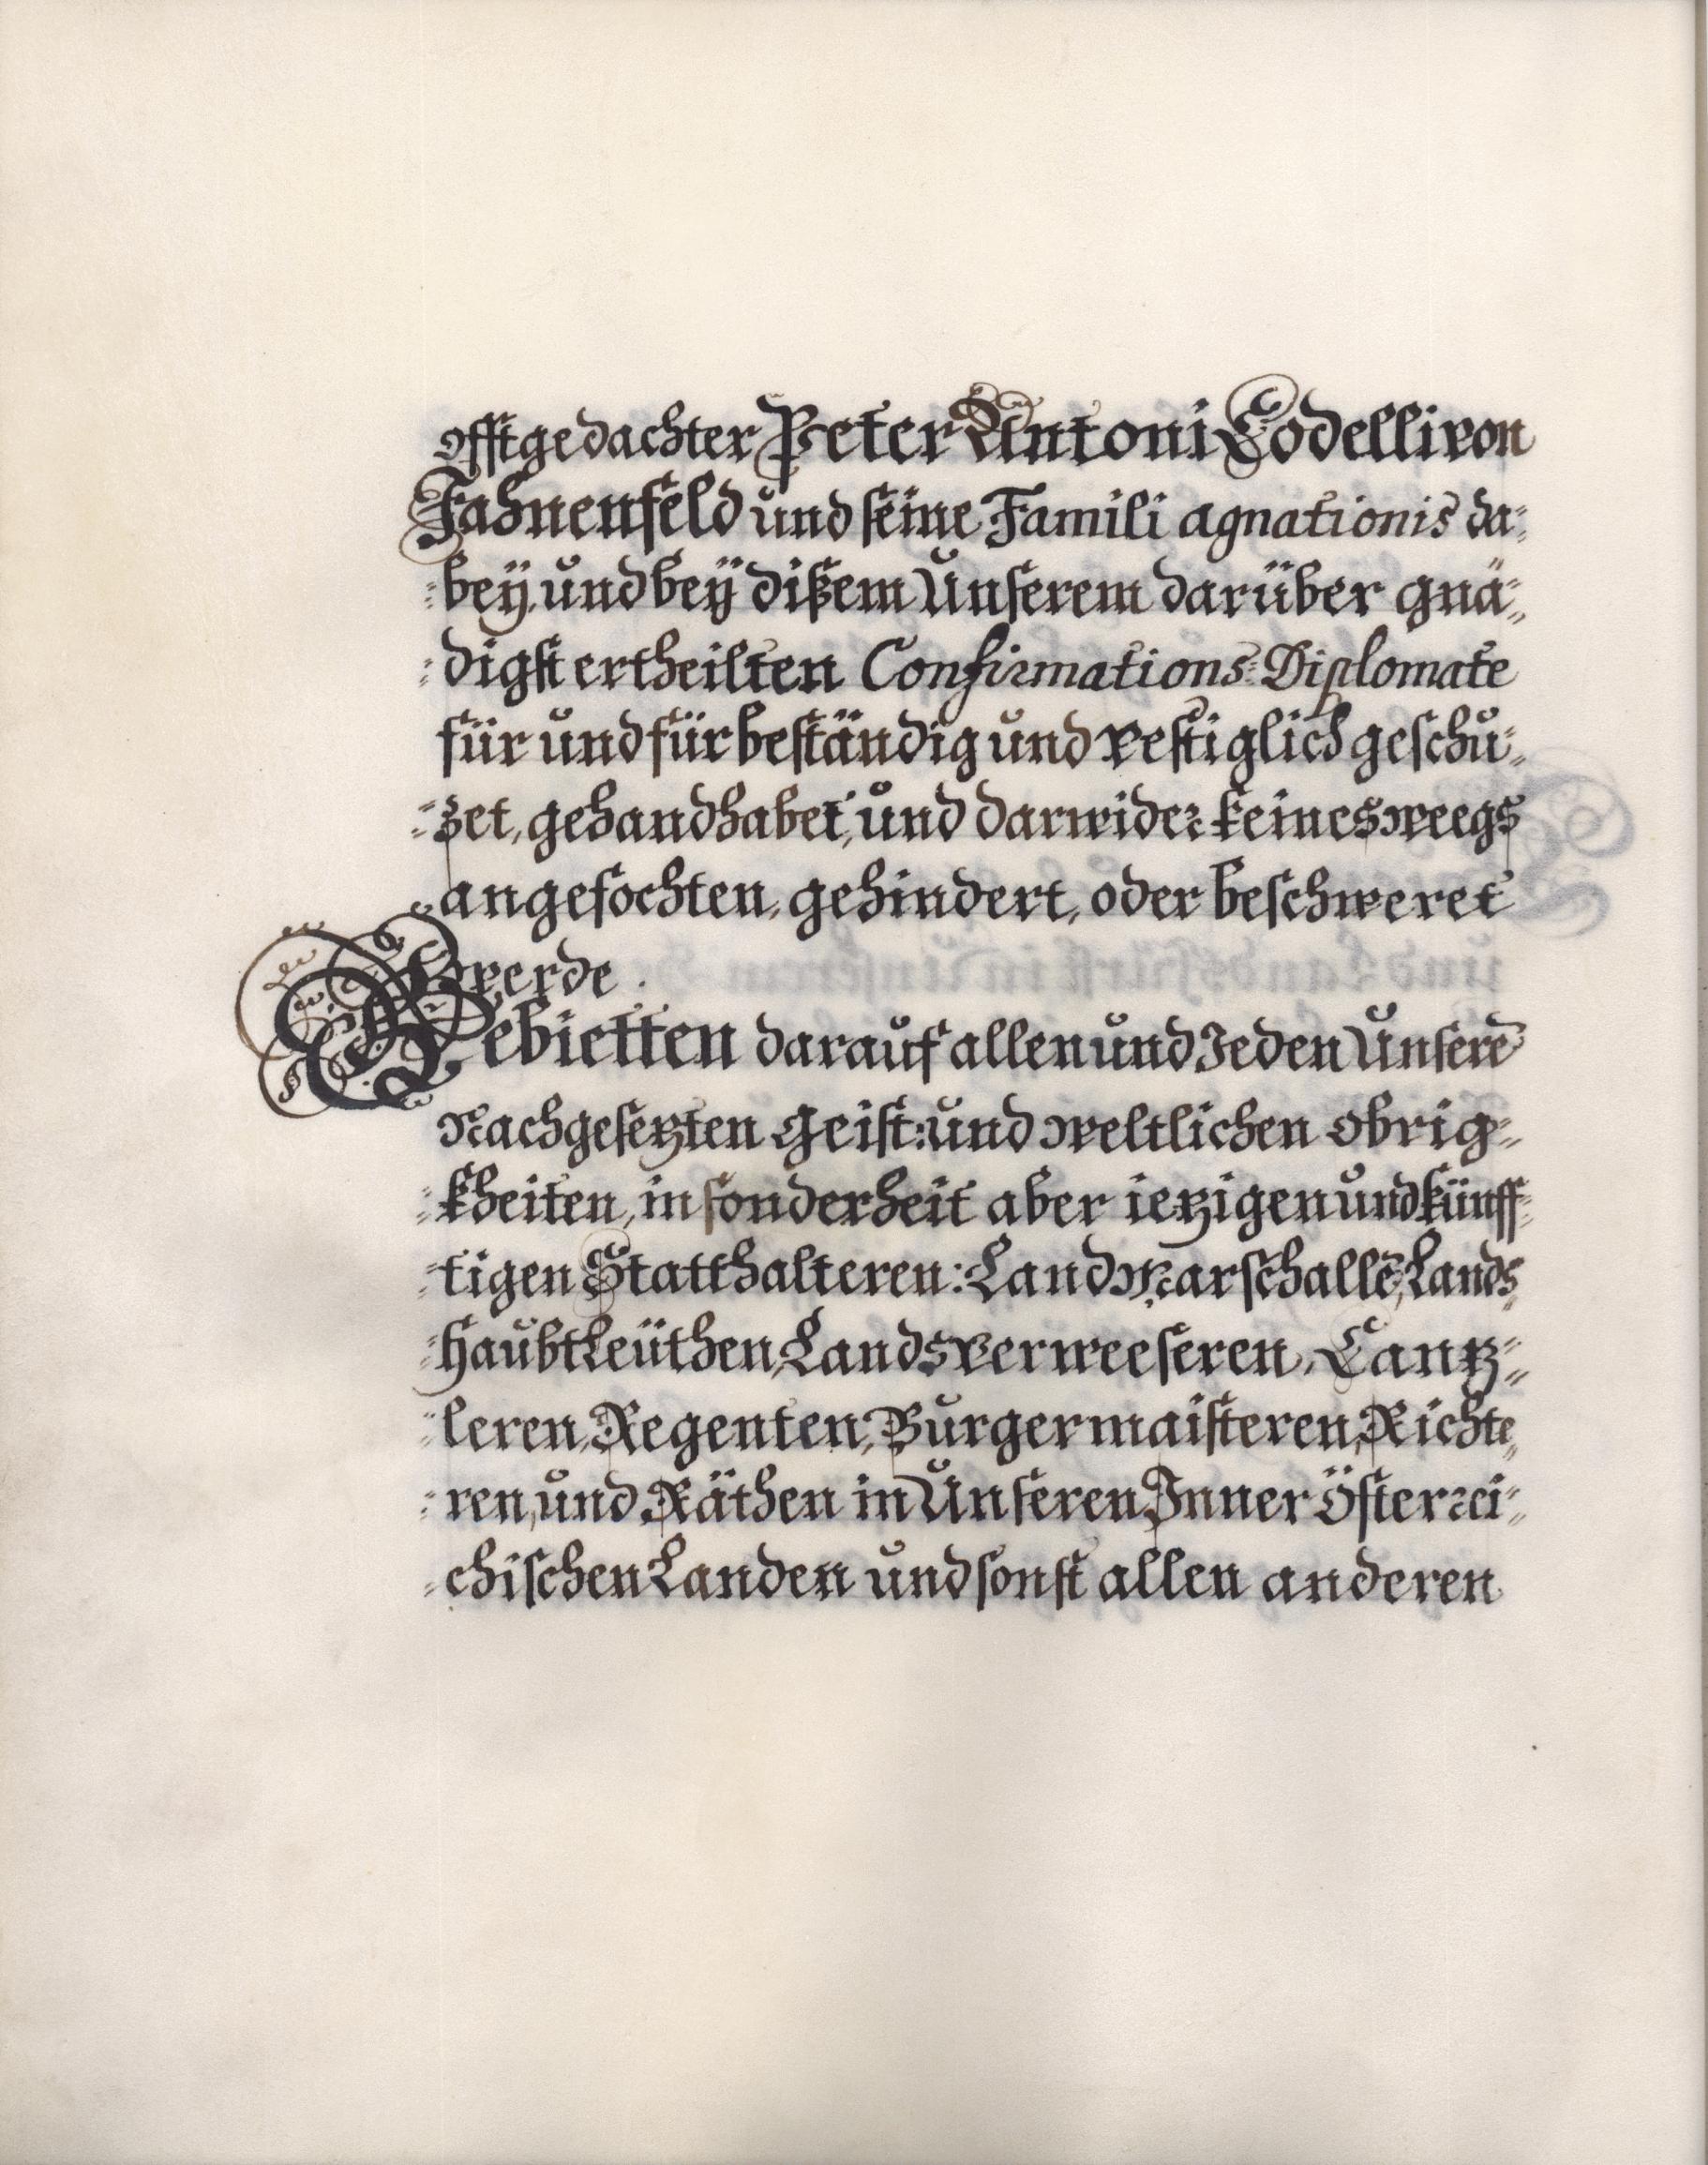 offtgedachter Peter Antoni Codelli von
Fahnenfeld und seine Famili agnationis da=
=bey, und bey dißem Unserem darüber gnä=
=digst ertheilten Confirmations=Diplomate
für und für beständig und vestiglich geschü=
=zet, gehandhabet, und darwider keinesweegs
angefochten, gehindert, oder beschweret
werde.
Gebietten darauf allen und Jeden Unserē
Nachgesezten Geist: und weltlichen obrig=
=kheiten, in sonderheit aber iezigen und künff=
=tigen Statthalteren: Land Marschallē, Lands
Haubtleüthen, Landsverweeseren, Canz=
=leren, Regenten, Burgermaisteren, Richte=
=ren, und Räthen in Unseren Inner Österrei=
=chischen Landen und sonst allen anderen